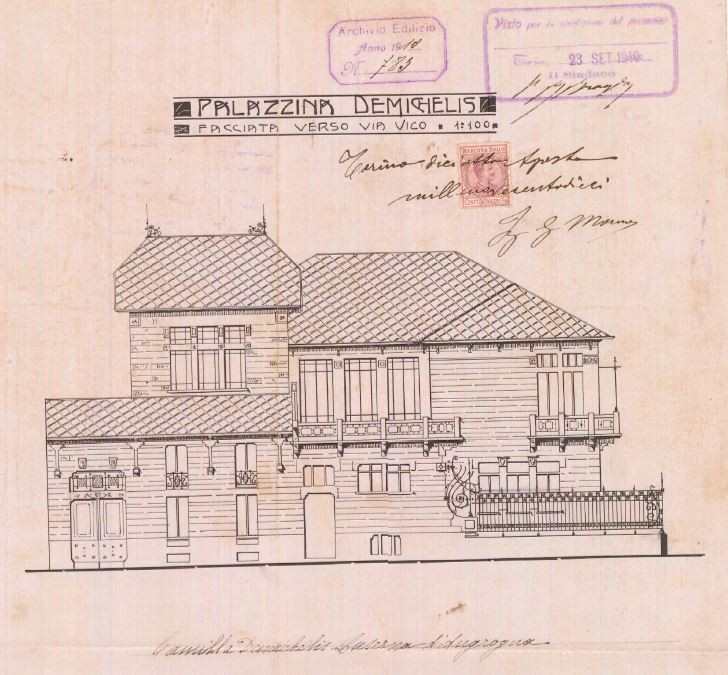 Archivio Edilizio
Anno 1910
N 783
Visto per la spedizione del permesso
Torino, 23 SET 1910
Il Sindaco
PALAZZINA DEMICHELIS
FACCIATA VERSO VIA VICO • 1:100
Torino diciotto Agosto
millenovecentodieci
MARCA DA BOLLO
Camilla Demichelis Luserna d'Angrogna